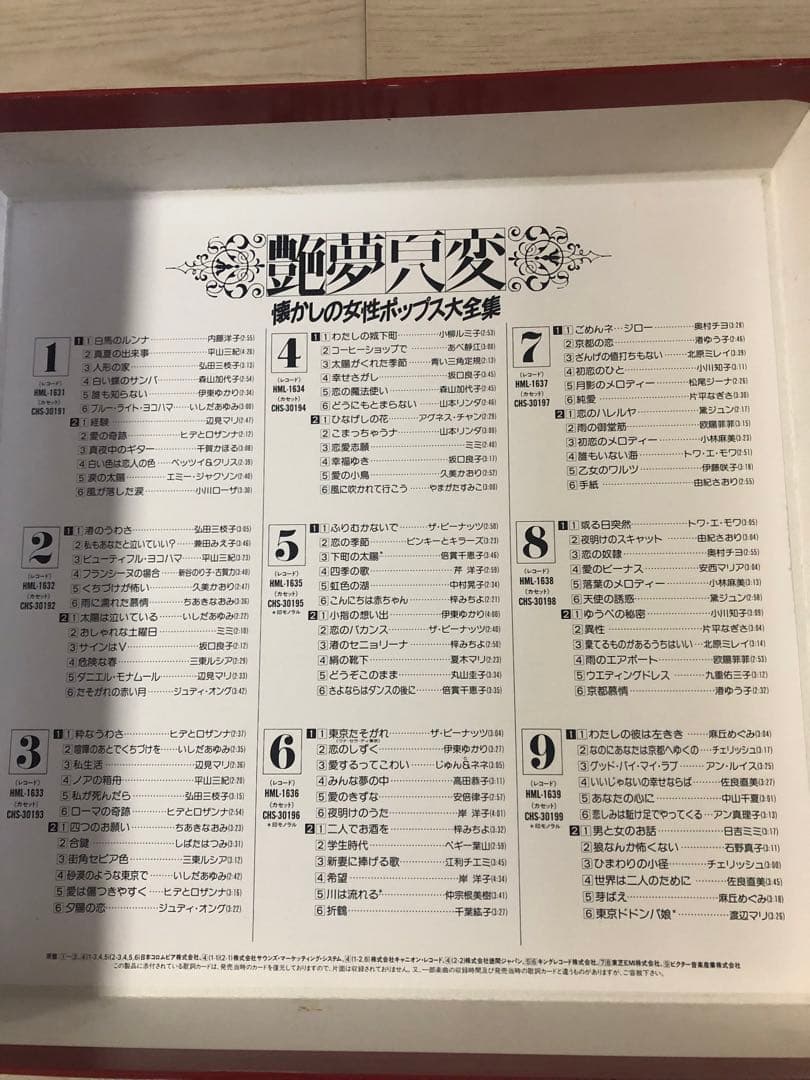 艶夢只変
懐かしの女性ポップス大全集
1
(レコード)
HML-1631
(カセット)
CHS-30191
1 1 白馬のルンナ 内藤洋子(2:55)
2 真夏の出来事 平山三紀(4:20)
3 人形の家 弘田三枝子(3:13)
4 白い蝶のサンバ 森山加代子(2:54)
5 誰も知らない 伊東ゆかり(2:34)
6 ブルー・ライト・ヨコハマ いしだあゆみ(3:00)
2 1 経験 辺見マリ(2:47)
2 愛の奇跡 ヒデとロザンナ(2:12)
3 真夜中のギター 千賀かほる(3:08)
4 白い色は恋人の色 ベッツイ&クリス(2:39)
5 涙の太陽 エミー・ジャクソン(2:40)
6 風が落した涙 小川ローザ(3:30)
2
(レコード)
HML-1632
(カセット)
CHS-30192
1 1 渚のうわさ 弘田三枝子(3:05)
2 私もあなたと泣いていい? 兼田みえ子(3:46)
3 ビューティフル・ヨコハマ 平山三紀(3:23)
4 フランシーヌの場合 新谷のり子・古賀力(3:40)
5 くちづけが怖い 久美かおり(2:47)
6 雨に濡れた慕情 ちあきなおみ(3:36)
2 1 太陽は泣いている いしだあゆみ(2:22)
2 おしゃれな土曜日 ミミ(2:10)
3 サインはV 坂口良子(2:12)
4 危険な春 三東ルシア(2:29)
5 ダニエル・モナムール 辺見マリ(2:53)
6 たそがれの赤い月 ジュディ・オング(3:42)
3
(レコード)
HML-1633
(カセット)
CHS-30193
1 1 粋なうわさ ヒデとロザンナ(2:37)
2 喧嘩のあとでくちづけを いしだあゆみ(2:35)
3 私生活 辺見マリ(2:36)
4 ノアの箱舟 平山三紀(2:20)
5 私が死んだら 弘田三枝子(3:15)
6 ローマの奇跡 ヒデとロザンナ(2:54)
2 1 四つのお願い ちあきなおみ(3:23)
2 合鍵 しばたはつみ(3:31)
3 街角セピア色 三東ルシア(3:12)
4 砂漠のような東京で いしだあゆみ(2:42)
5 愛は傷つきやすく ヒデとロザンナ(3:16)
6 夕陽の恋 ジュディ・オング(3:22)
4
(レコード)
HML-1634
(カセット)
CHS-30194
1 1 わたしの城下町 小柳ルミ子(2:53)
2 コーヒーショップで あべ静江(3:08)
3 太陽がくれた季節 青い三角定規(2:13)
4 幸せさがし 坂口良子(3:45)
5 恋の魔法使い 森山加代子(2:45)
6 どうにもとまらない 山本リンダ(2:46)
2 1 ひなげしの花 アグネス・チャン(2:29)
2 こまっちゃうナ 山本リンダ(3:00)
3 恋愛志願 ミミ(2:40)
4 幸福ゆき 坂口良子(3:17)
5 愛の小鳥 久美かおり(2:52)
6 風に吹かれて行こう やまがたすみこ(3:00)
5
(レコード)
HML-1635
(カセット)
CHS-30195
*印モノラル
1 1 ふりむかないで ザ・ピーナッツ(2:50)
2 恋の季節 ピンキーとキラーズ(3:46)
3 下町の太陽* 倍賞千恵子(3:23)
4 四季の歌 芹 洋子(2:59)
5 虹色の湖 中村晃子(2:34)
6 こんにちは赤ちゃん 梓みちよ(2:21)
2 1 小指の想い出 伊東ゆかり(4:00)
2 恋のバカンス ザ・ピーナッツ(2:40)
3 渚のセニョリーナ 梓みちよ(2:50)
4 絹の靴下 夏木マリ(2:23)
5 どうぞこのまま 丸山圭子(3:34)
6 さよならはダンスの後に 倍賞千恵子(3:35)
6
(レコード)
HML-1636
(カセット)
CHS-30196
*印モノラル
1 1 東京たそがれ ザ・ピーナッツ(3:04)
2 恋のしずく 伊東ゆかり(3:27)
3 愛するってこわい じゅん&ネネ(3:05)
4 みんな夢の中 高田恭子(3:11)
5 愛のきずな 安倍律子(2:57)
6 夜明けのうた 岸 洋子(4:01)
2 1 二人でお酒を 梓みちよ(3:32)
2 学生時代 ペギー葉山(2:59)
3 新妻に捧げる歌 江利チエミ(3:45)
4 希望 岸 洋子(4:34)
5 川は流れる* 仲宗根美樹(3:41)
6 折鶴 千葉紘子(3:27)
7
(レコード)
HML-1637
(カセット)
CHS-30197
1 1 ごめんネ…ジロー 奥村チヨ(3:28)
2 京都の恋 渚ゆう子(2:46)
3 ざんげの値打ちもない 北原ミレイ(3:39)
4 初恋のひと 小川知子(3:11)
5 月影のメロディー 松尾ジーナ(2:26)
6 純愛 片平なぎさ(3:30)
2 1 恋のハレルヤ 黛ジュン(2:17)
2 雨の御堂筋 欧陽菲菲(3:15)
3 初恋のメロディー 小林麻美(3:23)
4 誰もいない海 トワ・エ・モワ(2:51)
5 乙女のワルツ 伊藤咲子(3:18)
6 手紙 由紀さおり(2:55)
8
(レコード)
HML-1638
(カセット)
CHS-30198
1 1 或る日突然 トワ・エ・モワ(3:05)
2 夜明けのスキャット 由紀さおり(3:02)
3 恋の奴隷 奥村チヨ(2:55)
4 愛のビーナス 安西マリア(3:04)
5 落葉のメロディー 小林麻美(3:13)
6 天使の誘惑 黛ジュン(2:58)
2 1 ゆうべの秘密 小川知子(3:09)
2 異性 片平なぎさ(3:04)
3 棄てるものがあるうちはいい 北原ミレイ(3:14)
4 雨のエアポート 欧陽菲菲(2:53)
5 ウエディングドレス 九重佑三子(3:12)
6 京都慕情 渚ゆう子(2:32)
9
(レコード)
HML-1639
(カセット)
CHS-30199
*印モノラル
1 1 わたしの彼は左きき 麻丘めぐみ(3:04)
2 なのにあなたは京都へゆくの チェリッシュ(3:17)
3 グッド・バイ・マイ・ラブ アン・ルイス(3:25)
4 いいじゃないの幸せならば 佐良直美(3:27)
5 あなたの心に 中山千夏(3:01)
6 悲しみは駈け足でやってくる アン真理子(3:13)
2 1 男と女のお話 日吉ミミ(3:17)
2 狼なんか怖くない 石野真子(3:11)
3 ひまわりの小径 チェリッシュ(3:00)
4 世界は二人のために 佐良直美(3:45)
5 芽ばえ 麻丘めぐみ(3:18)
6 東京ドドンパ娘* 渡辺マリ(3:26)
この製品に添付されている歌詞カードは、発売当時のカードを復元しておりますので、片面は収録されておりません。又、一部楽曲の収録時間及び発売当時の歌詞カードと違うものがありますが、ご容赦下さい。